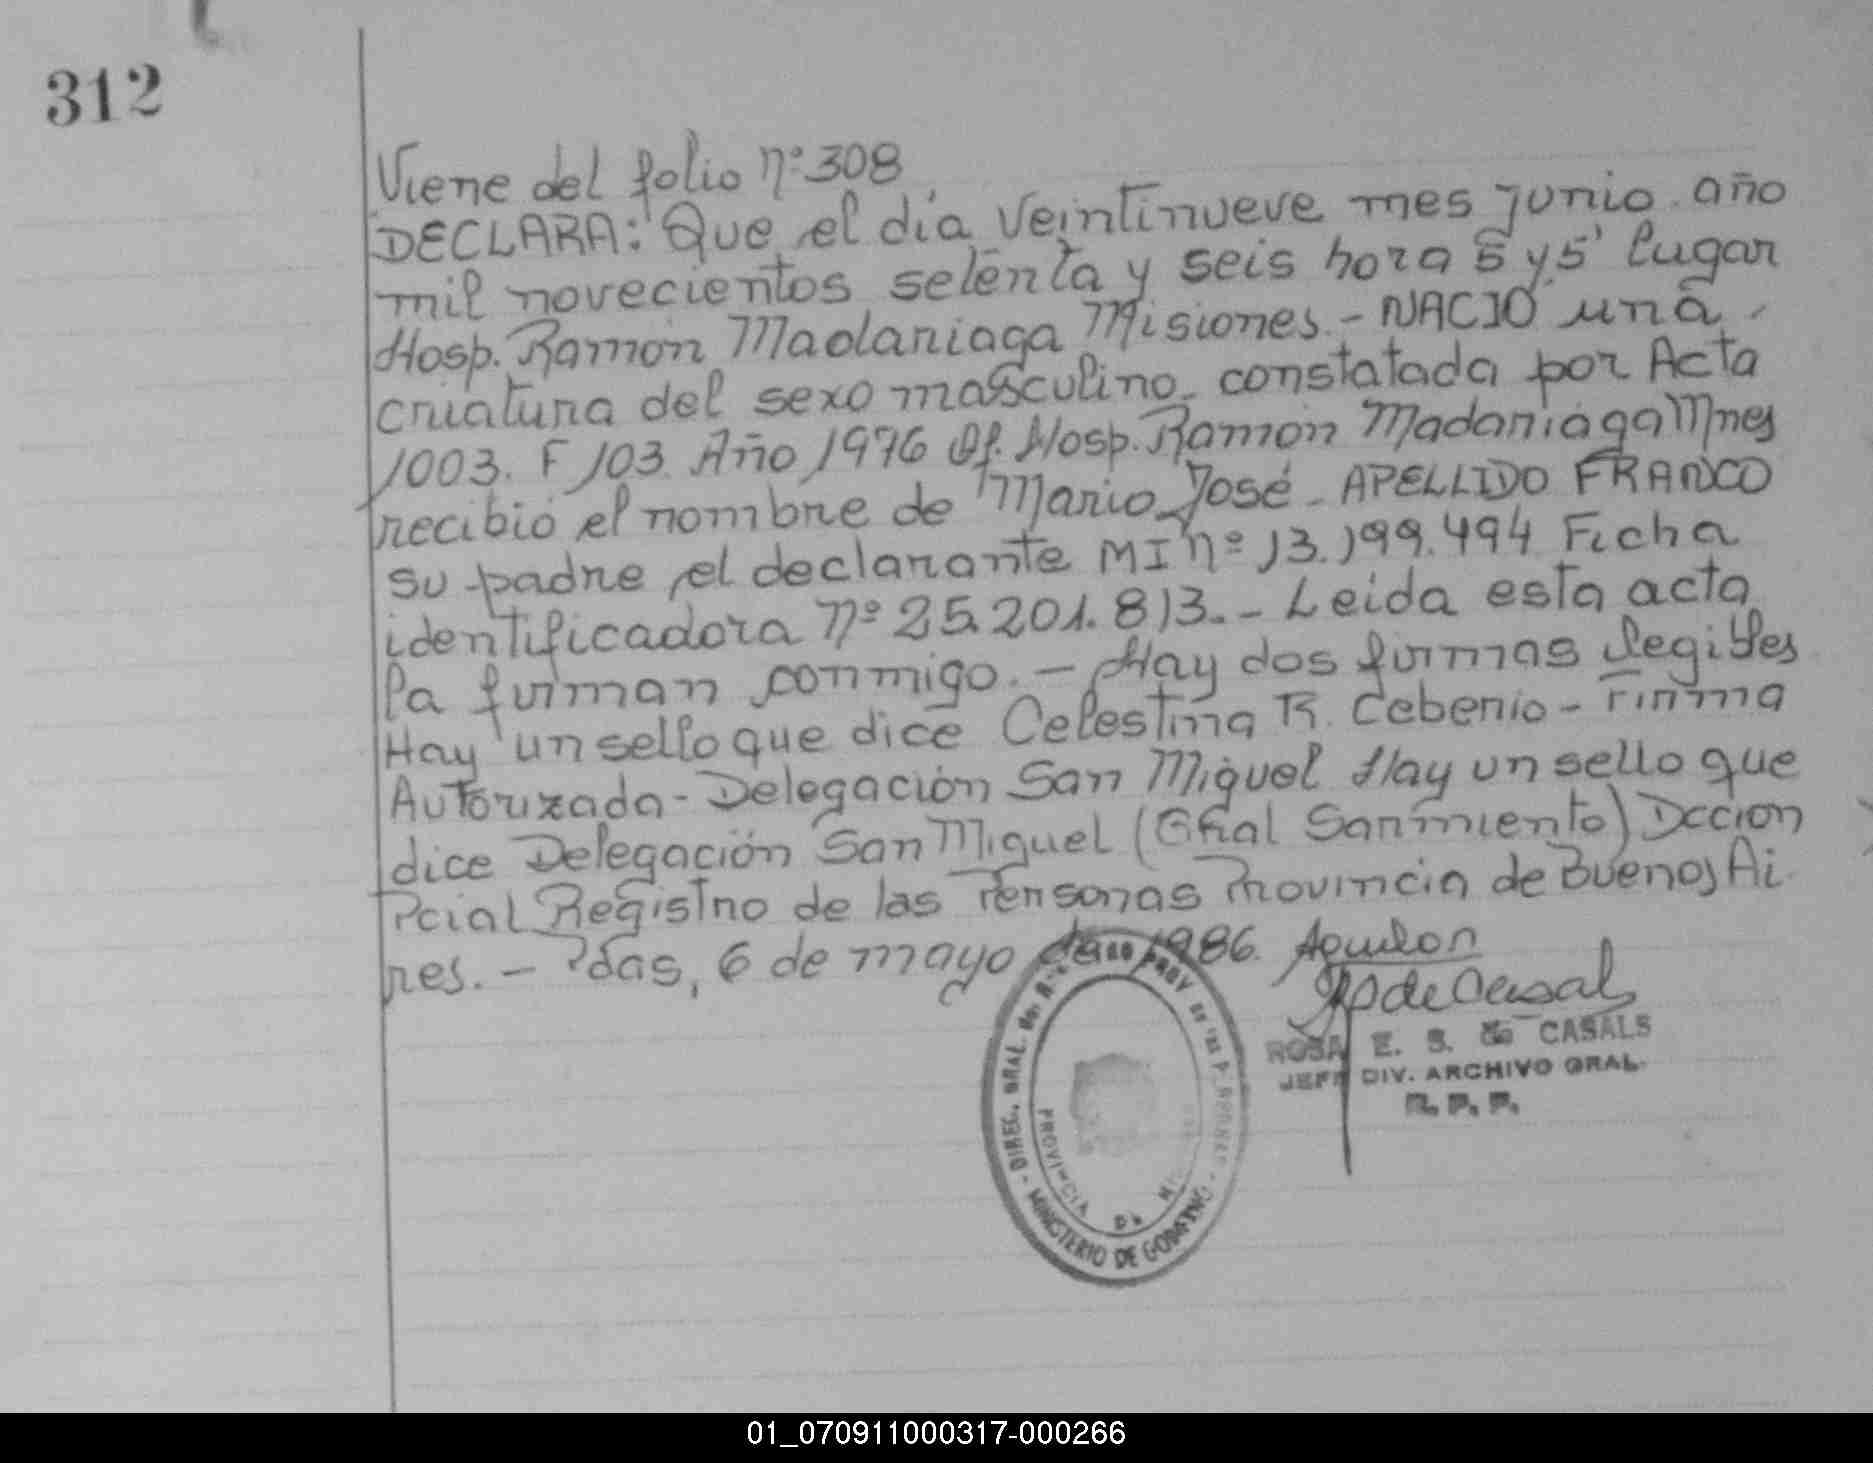 312
Viene del folio nº 308
DECLARA: Que el día veintinueve mes junio. año
mil novecientos setenta y seis hora 5 y 5' lugar
Hosp. Ramón Madariaga Misiones.- NACIO una
criatura del sexo masculino. constatada por Acta
1003. F 103. Año 1976 Of. Hosp. Ramón Madariaga Mnes
recibió el nombre de Mario José - APELLIDO FRANCO
su padre el declarante MI nº 13.199.494 Ficha
identificadora nº 25.201.813.- Leida esta acta
la firman conmigo. - Hay dos firmas legibles
Hay un sello que dice Celestina R. Ceberio - Firma
Autorizada - Delegación San Miguel Hay un sello que
dice Delegación San Miguel (Gral Sarmiento) Dccion
Pcial Registro de las Personas Provincia de Buenos Ai
res. - Pdas, 6 de mayo de 1986.
de Casals
ROSA E. S. de CASALS
JEFE DIV. ARCHIVO GRAL.
R. P. P.
DIREC. GRAL. DE LAS P
MINISTERIO DE GOBIERNO
PROVINCIA DE
01_070911000317-000266